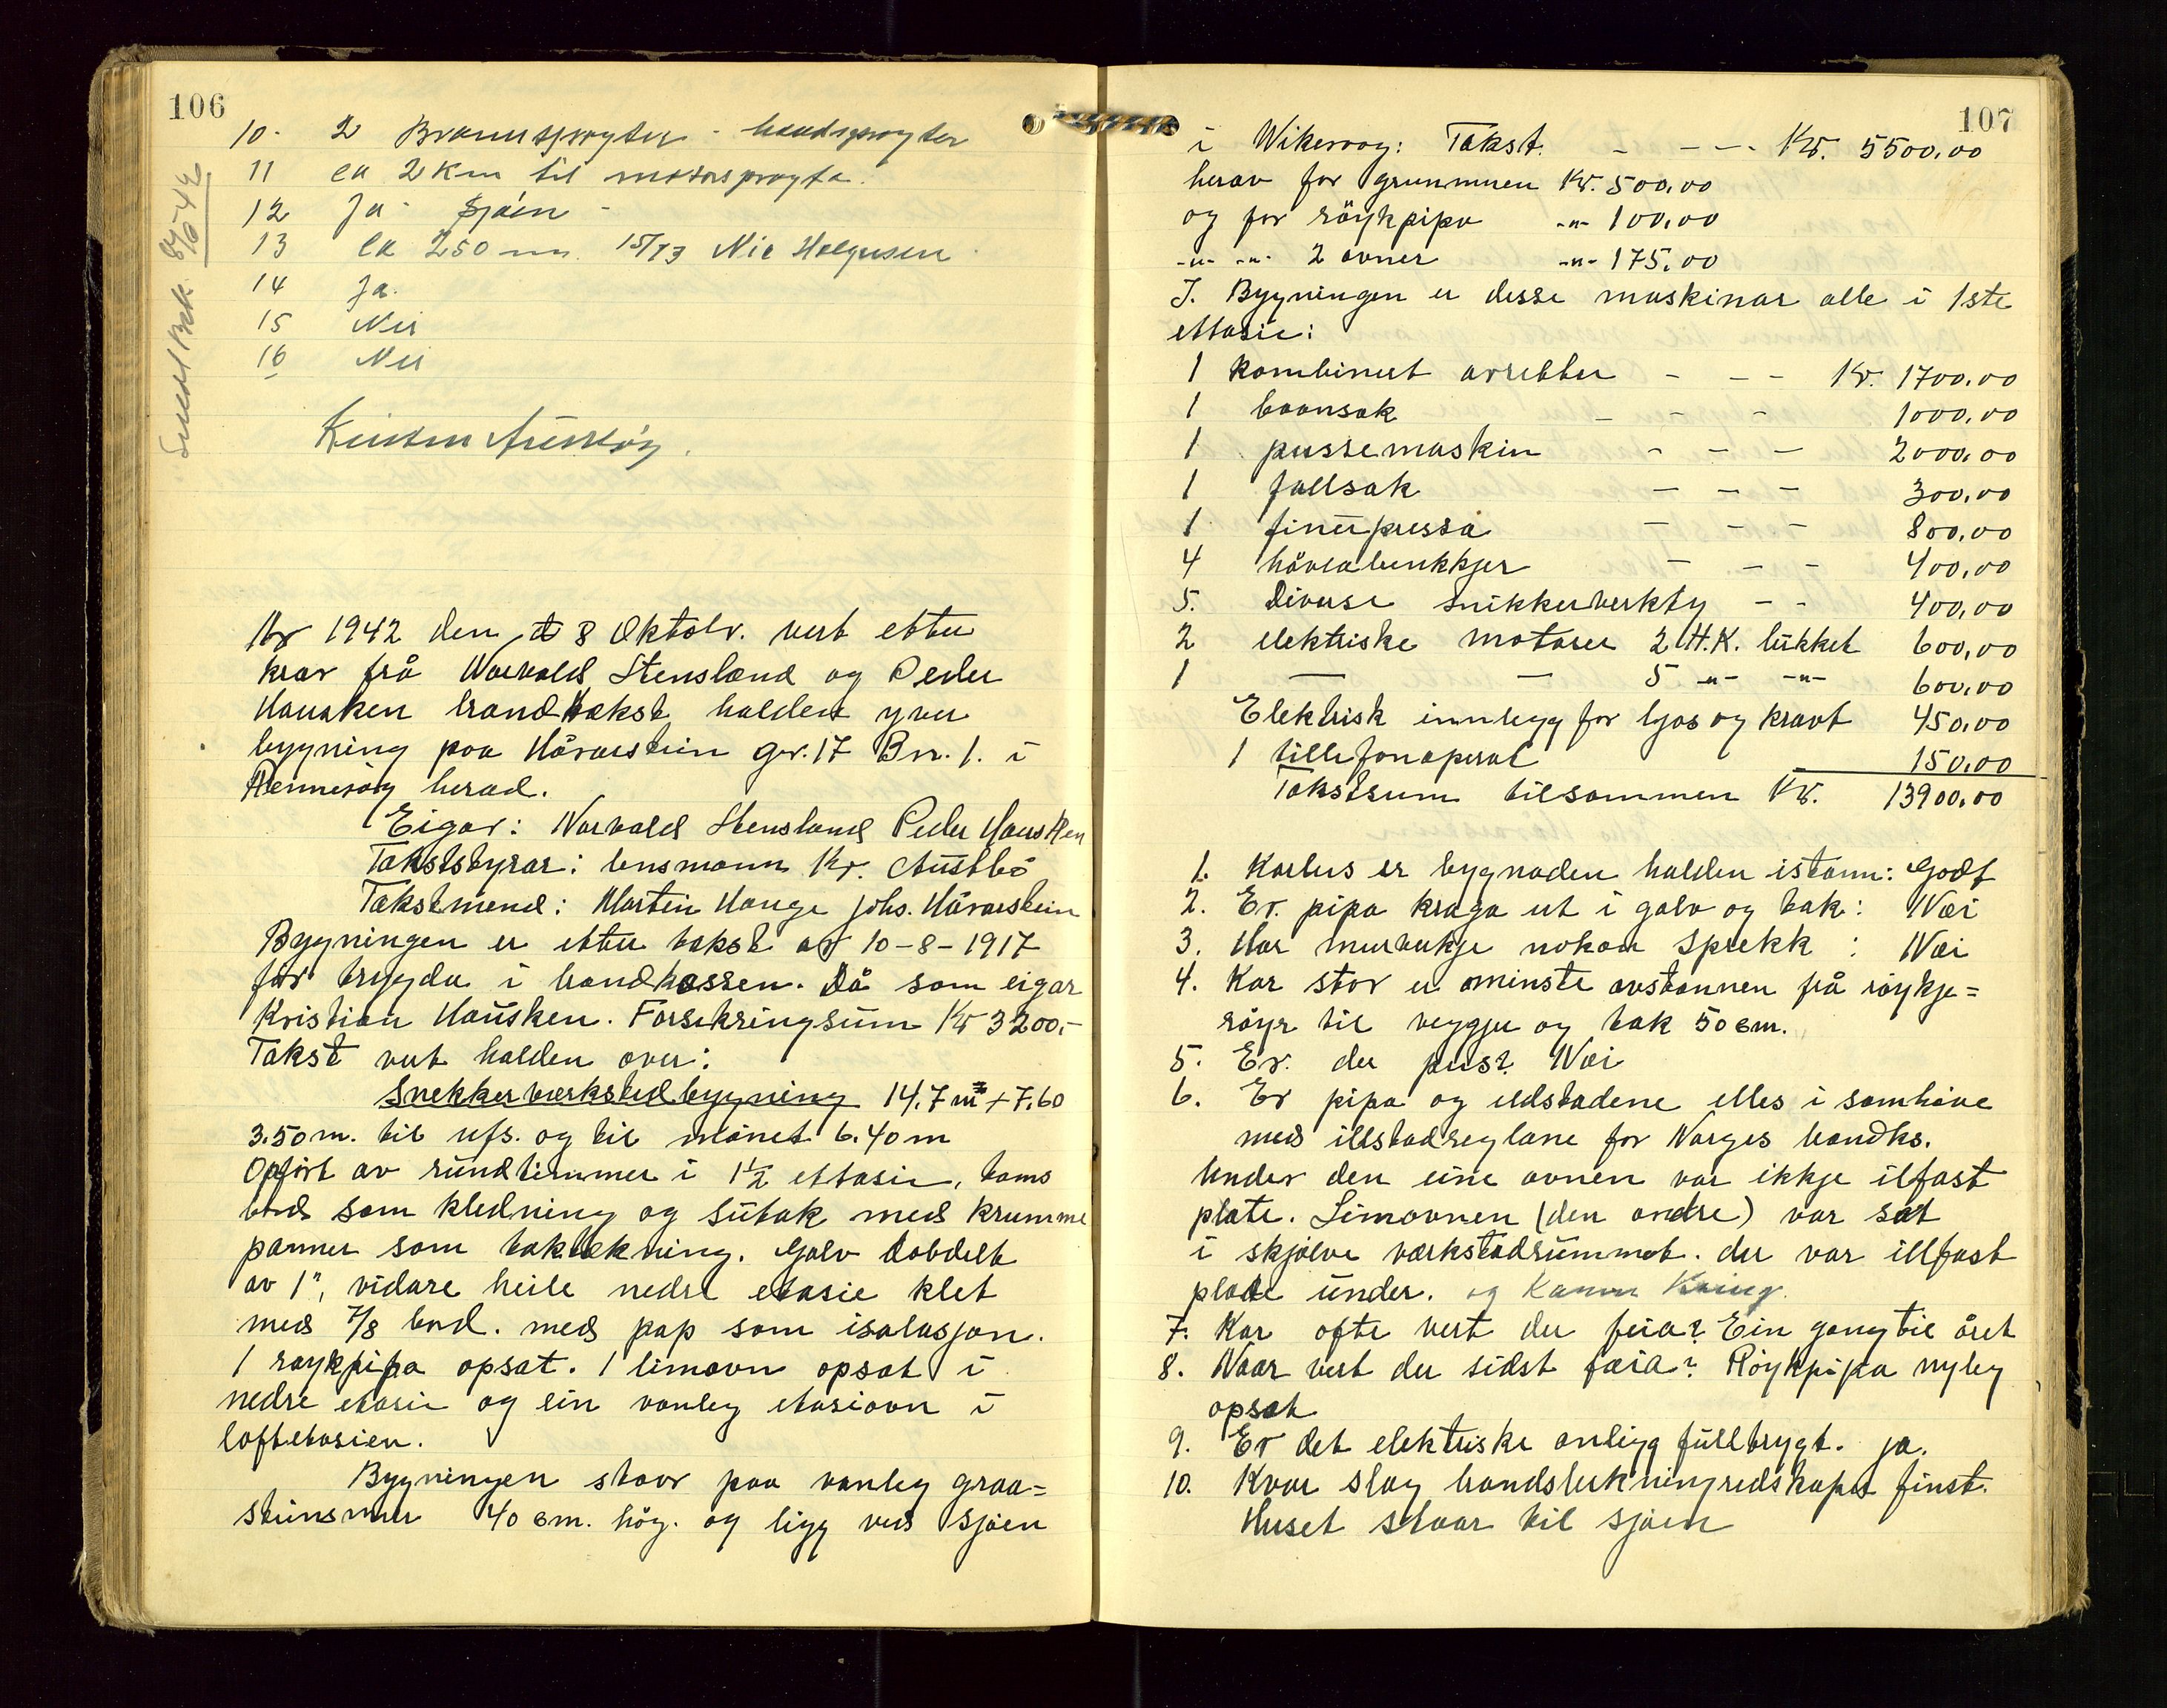 106
10. 2 Brannsprøyter - handsprøyter
11 ca 2 Km til motorsprøyta.
12 Ja - Sjøen -
13 ca 250 m. 15/73 Nic Helgesen
14 Ja.
15 Nei
16 Nei
Sendt Brk. 8/10-42
Kristen Austbø.
År 1942 den 8 Oktobr. vert etter
krav frå Norvald Stensland og Peder
Hausken brandtakst halden yver
bygning paa Håvarstein gr. 17 Bn. 1. i
Rennesøy herad.
Eigar: Norvald Stensland Peder Hausken
Takststyrar: lensmann Kr. Austbø
Takstmend: Martin Hauge Johs. Håvarstein
Bygningen er etter takst av 10-8-1917
før trygda i brandkassen. Då som eigar
Kristian Hausken. Forsekringsum Kr 3200,-
Takst vert halden over:
Snekkerverkstedbygning 14.7 m + 7.60
3.50 m. til ufs. og til mønet 6.40 m
Opført av rundtimmer i 1½ ettasie, toms
bord som kledning og sutak med krumme
panner som taktekning. Golv dobdelt
av 1", vidare heile nedre etasie klet
med 7/8 bord. med pap som isolasjon.
1 røykpipa opsat. 1 limovn opsat i
nedre etasie og ein vanleg etasiovn i
loftetasien.
Bygningen staar paa vanleg graa=
steinsmur 40 cm. høg. og ligg ved sjøen
107
i Wikevåg: Takst. - - - - Kr. 5500,00
herav for grunnmuen Kr. 500,00
og for röykpipo -"- 100,00
-"- -"- 2 ovner -"- 175,00
I. Bygningen er desse maskinar alle i 1ste
ettasie:
1 kombinert avretter - - - Kr. 1700,00
1 baansak - - - 1000,00
1 pussemaskin - - - 2000,00
1 fallsak - - - 300,00
1 finerpressa - - - 800,00
4 hövlabenkkjer - - - 400,00
5. Diverse snikkerverkty - - 400,00
2 elektriske motorer 2 H.K. lukket 600,00
1 — — 5 -"- -"- 600,00
Elektrisk innlegg for ljos og kravt 450,00
1 tillefonaperat 150,00
Takstsum tilsammen Kr. 13900,00
1. Korleis er bygnaden halden istann: Godt
2. Er. pipa kraga ut i golv og tak: Nei
3. Har murverkje nokon sprekk : Nei
4. Kor stor er minste avstannen frå röykje=
röyr til veggje og tak 50 cm.
5. Er. der pus? Nei
6. Er pipa og eldstadene elles i samhöve
med illstadreglane for Norges brandks.
Under den eine ovnen var ikkje ilfast
plate. Limovnen (den andre) var sat
i skjølve verkstadrummet. der var illfast
plate under. og Kamm Kring.
7. Kor ofte vert der feia? Ein gong til året
8. Naar vert der sidst feia? Röykpipa nyleg
opsat
9. Er det elektriske anlegg fulltrygt. ja.
10. Kvar slag brandsløkningredskaper finst.
Huset staar til sjøen